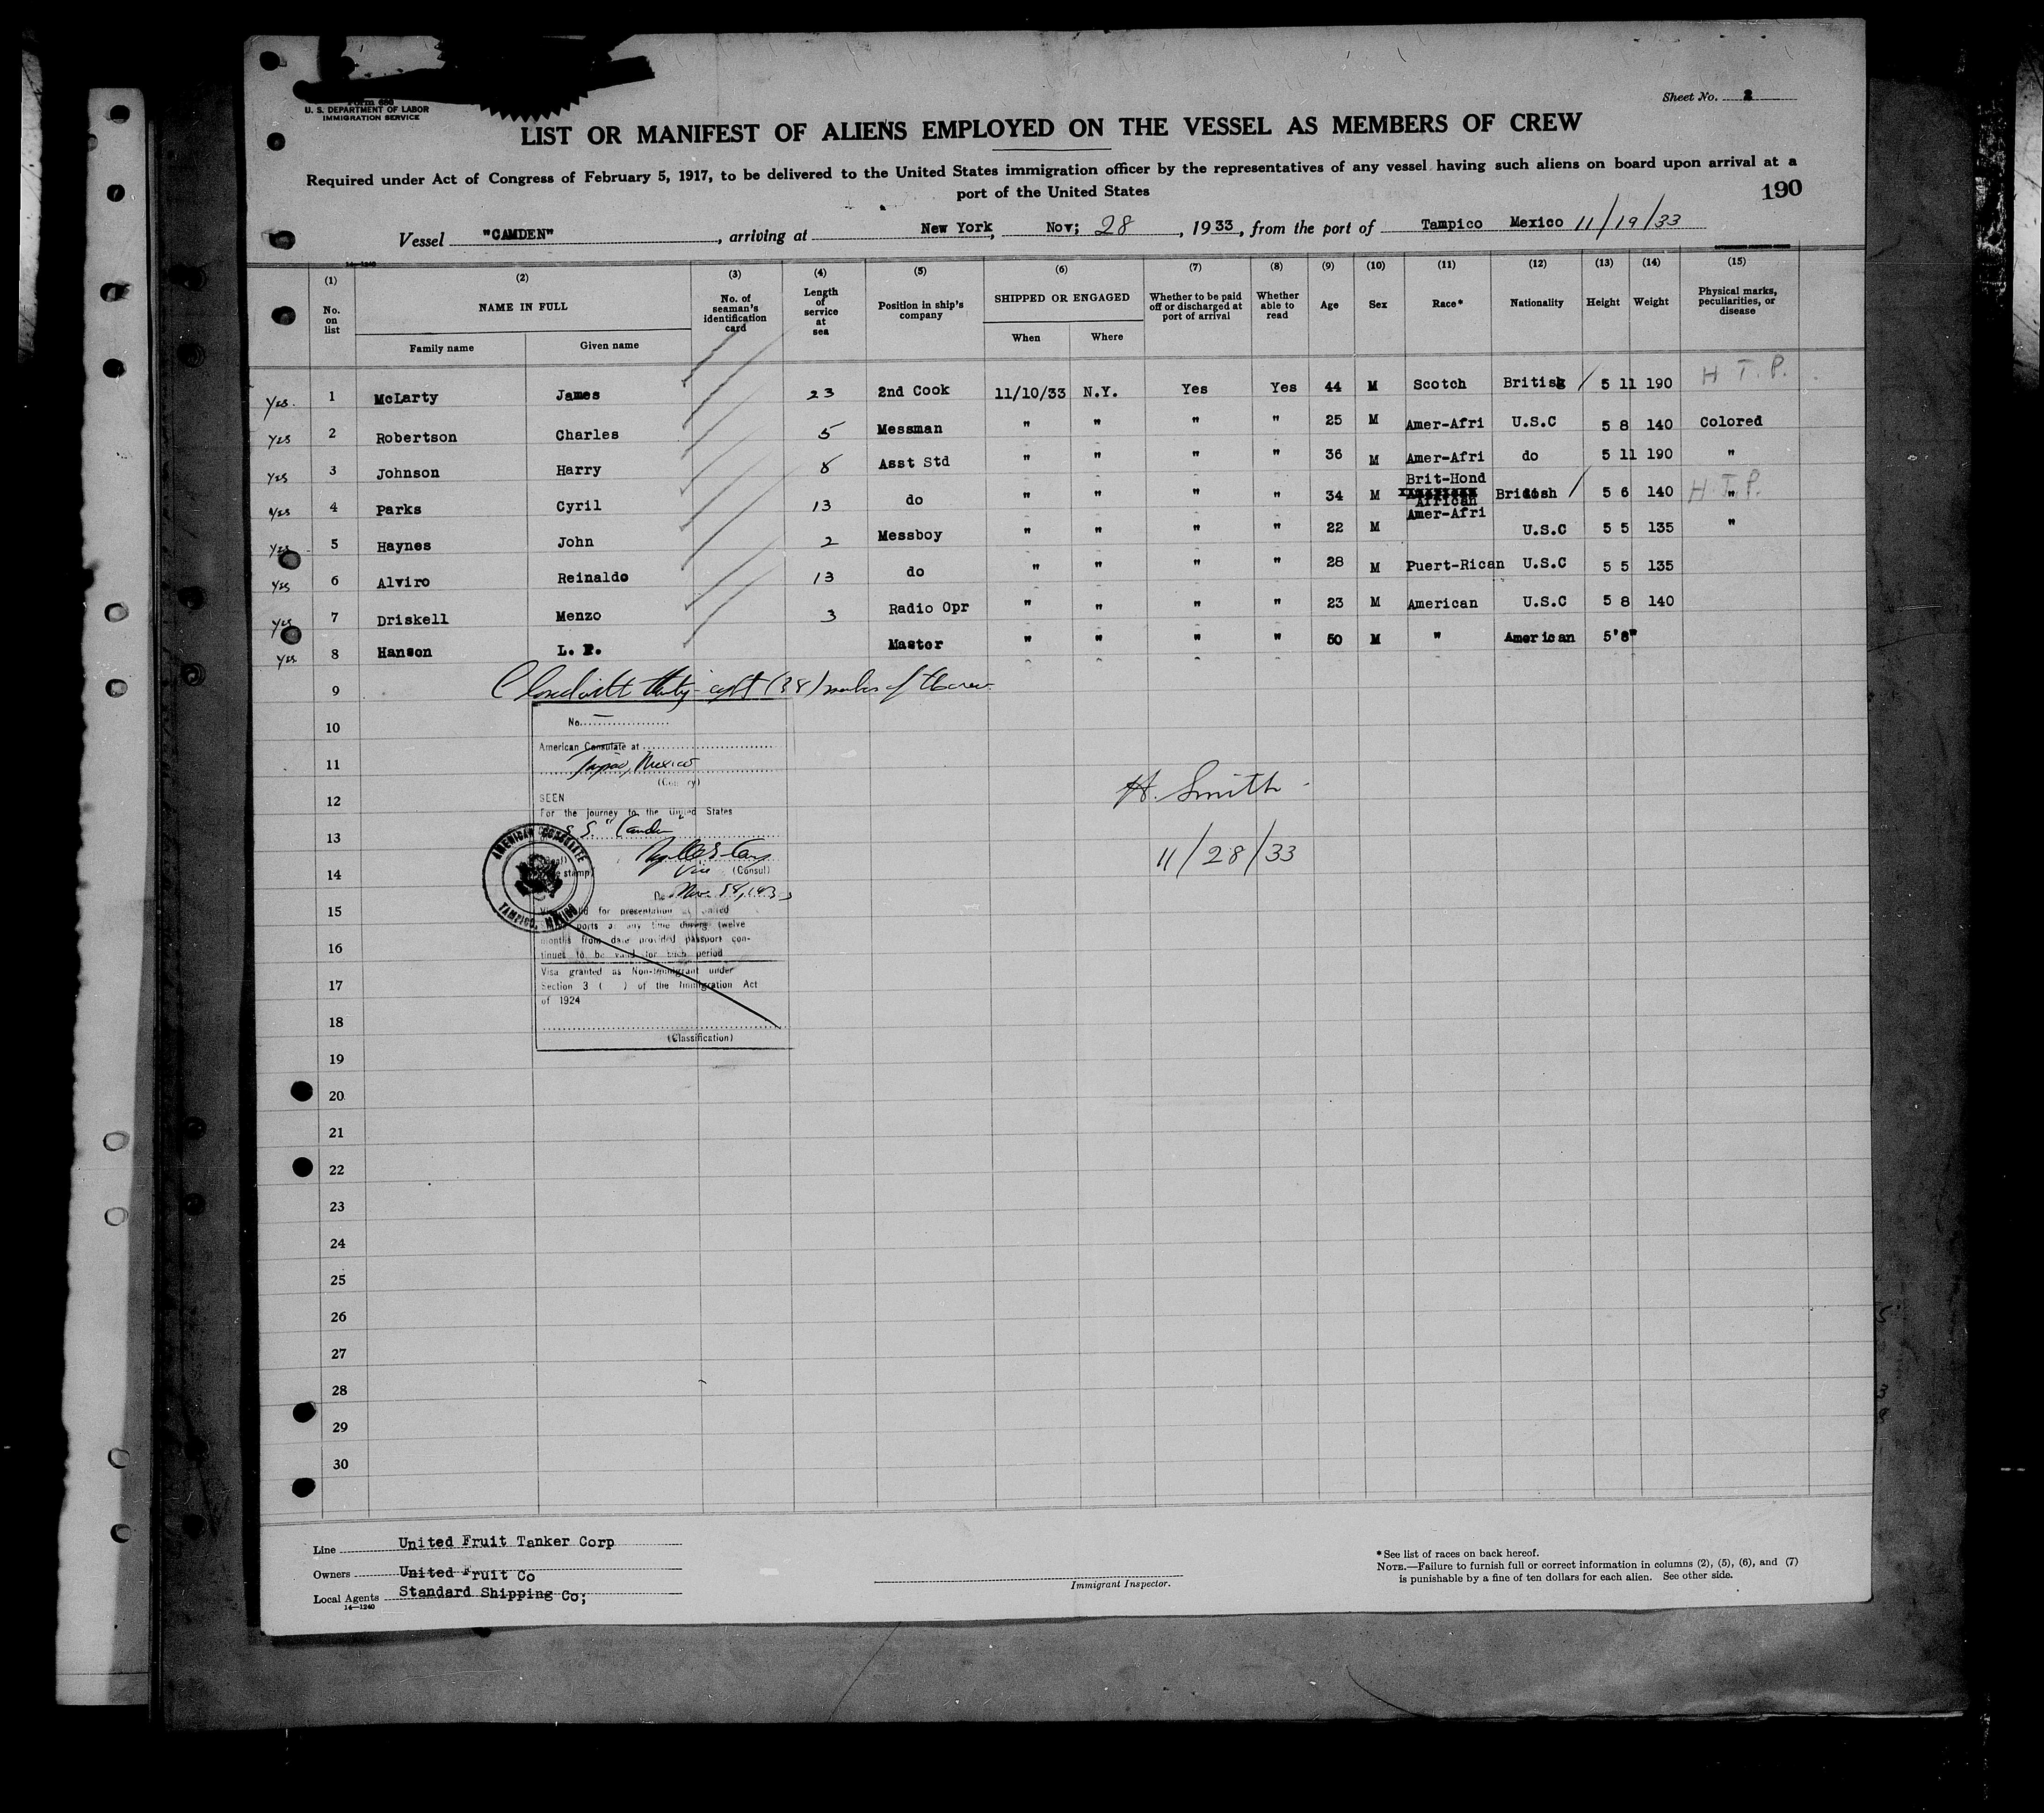 Form 686
U. S. DEPARTMENT OF LABOR
IMMIGRATION SERVICE
Sheet No. 2
LIST OR MANIFEST OF ALIENS EMPLOYED ON THE VESSEL AS MEMBERS OF CREW
Required under Act of Congress of February 5, 1917, to be delivered to the United States immigration officer by the representatives of any vessel having such aliens on board upon arrival at a
port of the United States
190
Vessel "CAMDEN", arriving at New York, Nov; 28, 1933, from the port of Tampico Mexico 11/19/33
14—1240
(1) (2) (3) (4) (5) (6) (7) (8) (9) (10) (11) (12) (13) (14) (15)
No. on list NAME IN FULL No. of seaman's identification card Length of service at sea Position in ship's company SHIPPED OR ENGAGED Whether to be paid off or discharged at port of arrival Whether able to read Age Sex Race* Nationality Height Weight Physical marks, peculiarities, or disease
Family name Given name When Where
Yes. 1 McLarty James 23 2nd Cook 11/10/33 N.Y. Yes Yes 44 M Scotch British / 5 11 190 H T. P.
Yes 2 Robertson Charles 5 Messman " " " " 25 M Amer-Afri U.S.C 5 8 140 Colored
Yes 3 Johnson Harry 8 Asst Std " " " " 36 M Amer-Afri do 5 11 190 "
Yes 4 Parks Cyril 13 do " " " " 34 M Brit-Hond African British / 5 6 140 H.T.P. "
Yes 5 Haynes John 2 Messboy " " " " 22 M Amer-Afri U.S.C 5 5 135 "
Yes 6 Alviro Reinaldo 13 do " " " " 28 M Puert-Rican U.S.C 5 5 135
Yes 7 Driskell Menzo 3 Radio Opr " " " " 23 M American U.S.C 5 8 140
Yes 8 Hanson L. P. Master " " " " 50 M " American 5'8"
9 Closed with thirty-eight (38) members of the crew.
10
No.
American Consulate at
11
Tampico, Mexico
(Country)
12
SEEN
For the journey to the United States
H. Smith
13
S S "Camden"
AMERICAN CONSULATE
TAMPICO, MEXICO
11/28/33
14
Vice (Consul)
Nov.
15
Visa valid for presentation at United
States ports at any time during twelve
16
months from date provided passport con-
tinues to be valid for such period
17
Visa granted as Non-Immigrant under
Section 3 ( ) of the Immigration Act
of 1924
18
(Classification)
19
20
21
22
23
24
25
26
27
28
29
30
Line United Fruit Tanker Corp
Owners United Fruit Co
Local Agents Standard Shipping Co;
14—1240
Immigrant Inspector.
* See list of races on back hereof.
NOTE.—Failure to furnish full or correct information in columns (2), (5), (6), and (7)
is punishable by a fine of ten dollars for each alien. See other side.